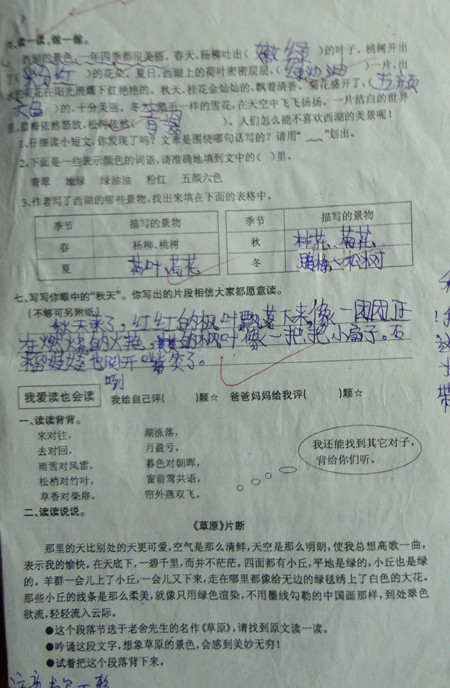 六、读一读,做一做。
西湖的景色,一年四季都很美丽。春天,杨柳吐出(嫩绿)的叶子,桃树开出
了(粉红)的花朵。夏日,西湖上的荷叶密密层层,(绿油油)一片,出
水的荷花在阳光照耀下红艳艳的。秋天,桂花金灿灿的,飘着清香。菊花盛开了,(五颜
六色)的,十分美丽。冬天,鹅毛一样的雪花,在天空中飞飞扬扬。一片洁白的世界
里,腊梅依然怒放,松柏依然(青翠)。人们怎么能不喜欢西湖的美景呢!
1.仔细读小短文,你发现了吗?文章是围绕哪句话写的?请用“﹏﹏”划出。
2.下面是一些表示颜色的词语,请准确地填到文中的( )里。
青翠 嫩绿 绿油油 粉红 五颜六色
3.作者写了西湖的哪些景物,找出来填在下面的表格中。
季节 描写的景物 季节 描写的景物
春 杨柳、桃树 秋 桂花、菊花
夏 荷叶、荷花 冬 腊梅、松树
七、写写你眼中的“秋天”。你写出的片段相信大家都愿意读。
(不够可另附纸)
秋天来了,红红的枫叶飘落下来像一团团正
在燃烧的火艳,的枫叶像一把把小扇子。石
榴娃娃也咧开嘴笑了。
咧
我爱读也会读 我给自己评( )颗☆ 爸爸妈妈给我评( )颗☆
一、读读背背。
来对往, 潮涨落,
去对回, 月盈亏,
雨雪对风雷, 暮色对朝晖,
松梢对竹叶, 窗前莺共语,
草香对柴扉。 帘外燕双飞。
我还能找到其它对子,
背给你们听。
二、读读说说。
《草原》片断
那里的天比别处的天更可爱,空气是那么清鲜,天空是那么明朗,使我总想高歌一曲,
表示我的愉快。在天底下,一碧千里,而并不茫茫。四面都有小丘,平地是绿的,小丘也是绿
的,羊群一会儿上了小丘,一会儿又下来,走在哪里都像给无边的绿毯绣上了白色的大花。
那些小丘的线条是那么柔美,就像只用绿色渲染,不用墨线勾勒的中国画那样,到处翠色
欲流,轻轻流入云际。
●这个段落节选于老舍先生的名作《草原》,请找到原文读一读。
●吟诵这段文字,想象草原的景色,会感到美妙无穷!
●试着把这个段落背下来。